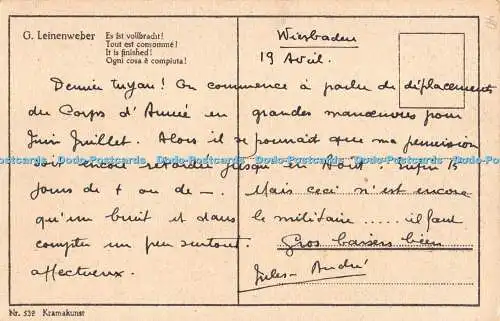 G. Leinenweber
Es ist vollbracht!
Tout est consommé!
It is finished!
Ogni cosa è compiuta!
Wiesbaden
19 Avril.
Dernier tuyau! On commence à parler de déplacements
du Corps d'Armée en grandes manœuvres pour
Juin Juillet. Alors il se pourrait que ma permission
soit encore retardée jusqu'en Août. Enfin 15
jours de + ou de –. Mais ceci n'est encore
qu'un bruit et dans le militaire ..... il faut
compter un peu surtout. Gros baisers bien
affectueux.
Jules-André
Dodo-Postcards.com
Nr. 539 Kramakunst